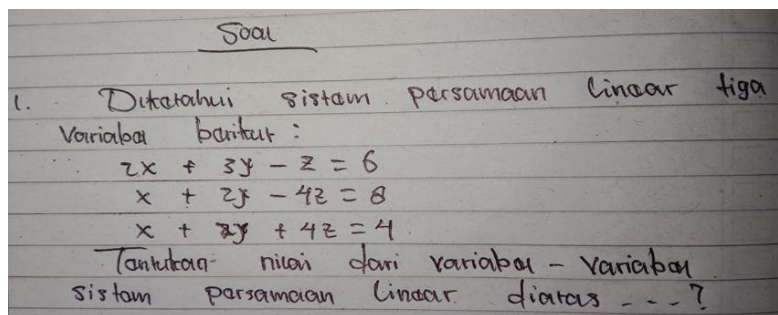 Soal
1. Diketahui sistem persamaan linear tiga
Variabel berikut :
2x + 3y - z = 6
x + 2y - 4z = 8
x + 2y + 4z = 4
Tentukan nilai dari variabel - variabel
sistem persamaan linear diatas - - - ?